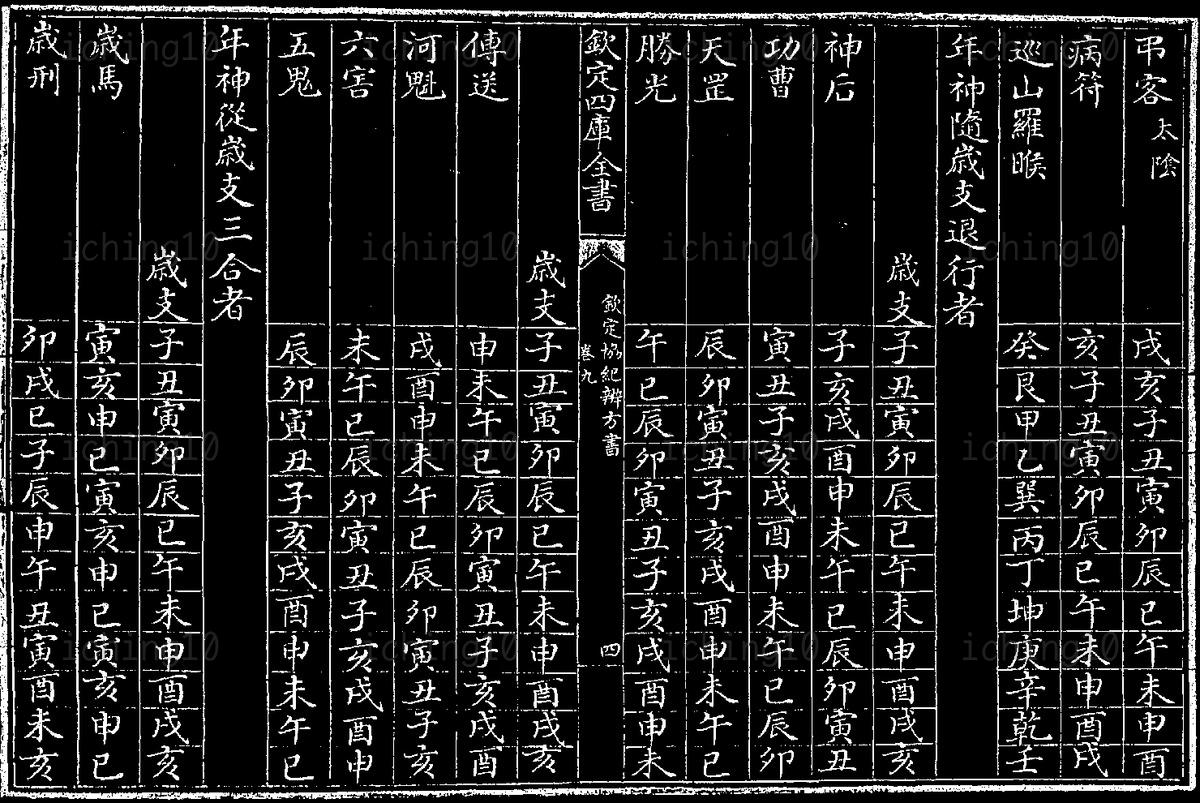 弔客太陰戌亥子丑寅卯辰巳午未申酉
病符亥子丑寅卯辰巳午未申酉戌
巡山羅睺癸艮甲乙巽丙丁坤庚辛乾壬
年神隨歲支退行者
歲支子丑寅卯辰巳午未申酉戌亥
神后子亥戌酉申未午巳辰卯寅丑
功曹寅丑子亥戌酉申未午巳辰卯
天罡辰卯寅丑子亥戌酉申未午巳
勝光午巳辰卯寅丑子亥戌酉申未
欽定四庫全書
欽定協紀辨方書
卷九
四
歲支子丑寅卯辰巳午未申酉戌亥
傳送申未午巳辰卯寅丑子亥戌酉
河魁戌酉申未午巳辰卯寅丑子亥
六害未午巳辰卯寅丑子亥戌酉申
五鬼辰卯寅丑子亥戌酉申未午巳
年神從歲支三合者
歲支子丑寅卯辰巳午未申酉戌亥
歲馬寅亥申巳寅亥申巳寅亥申巳
歲刑卯戌巳子辰申午丑寅酉未亥
iching10 iching10 iching10 iching10
iching10 iching10 iching10 iching10
iching10 iching10 iching10 iching10